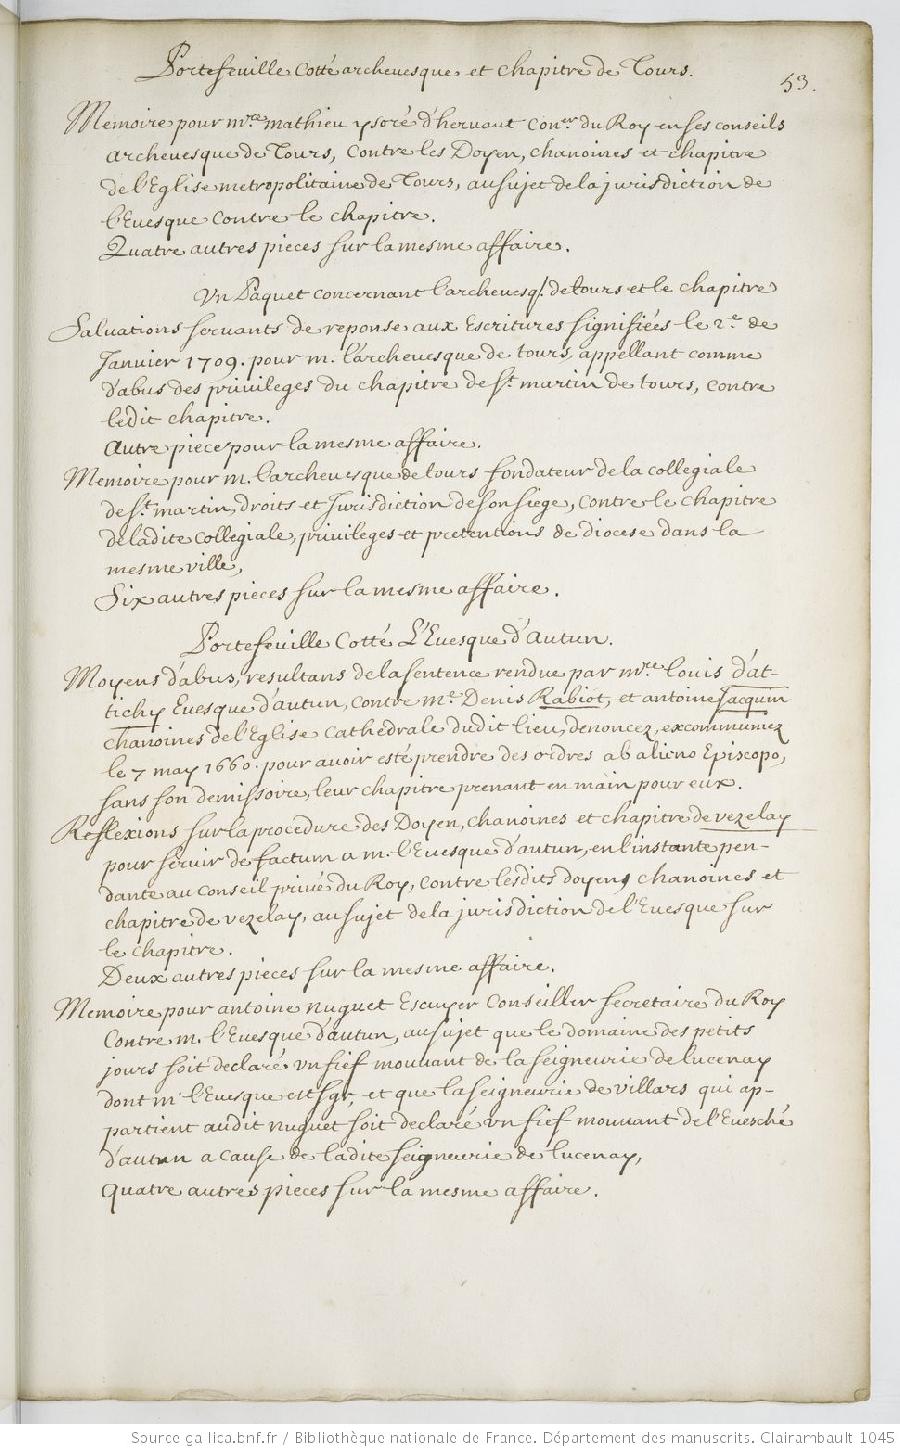 Portefeuille Cotté archevesque et Chapitre de Tours.
53.
Memoire pour mre. mathieu yscré d'hervaut Coner. du Roy en ses conseils
archevesque de Tours, Contre les Doyen, chanoines et chapitre
de l'Eglise metropolitaine de Tours, au sujet de la jurisdiction de
l'Evesque Contre le chapitre.
Quatre autres pieces sur la mesme affaire.
Vn Paquet concernant l'archevesq. de tours et le chapitre
Salvations servants de reponse aux Escritures signifiées le 2e de
Janvier 1709. pour m. l'archevesque de tours, appellant comme
d'abus des privileges du chapitre de St. martin de tours, contre
ledit chapitre.
Autre piece pour la mesme affaire.
Memoire pour m. l'archevesque de tours fondateur de la collegiale
de St. martin, droits et Jurisdiction de son siege, contre le Chapitre
de ladite Collegiale, privileges et pretentions de diocese dans la
mesme ville,
Six autres pieces sur la mesme affaire.
Portefeuille Cotté L'Evesque d'autun.
Moyens d'abus, resultans de la sentence rendue par mre. louis d'at-
tichy Evesque d'autun, contre me. Denis Rabiot, et antoine Jacquin
chanoines de l'Eglise Cathedrale dudit lieu, denoncez, excommuniez
le 7 may 1660. pour avoir esté prendre des ordres ab alieno Episcopo,
sans son demissoire, leur chapitre prenant en main pour eux.
Reflexions sur la procedure des Doyen, chanoines et chapitre de vezelay
pour servir de factum a m. l'Evesque d'autun, en l'instante pen-
dante au Conseil privé du Roy, contre lesdits doyen, chanoines et
chapitre de vezelay, au sujet de la jurisdiction de l'Evesque sur
le chapitre.
Deux autres pieces sur la mesme affaire.
Memoire pour antoine nuguet Escuyer Conseiller secretaire du Roy
Contre m. l'Evesque d'autun, au sujet que le domaine des petits
jours soit declaré vn fief mouvant de la seigneurie de lucenay
dont m l'Evesque est sgr, et que la seigneurie de villars qui ap-
partient audit nuguet soit declaré vn fief mouvant de l'Evesché
d'autun a cause de ladite seigneurie de lucenay,
Quatre autres pieces sur la mesme affaire.
Source gallica.bnf.fr / Bibliothèque nationale de France. Département des manuscrits. Clairambault 1045